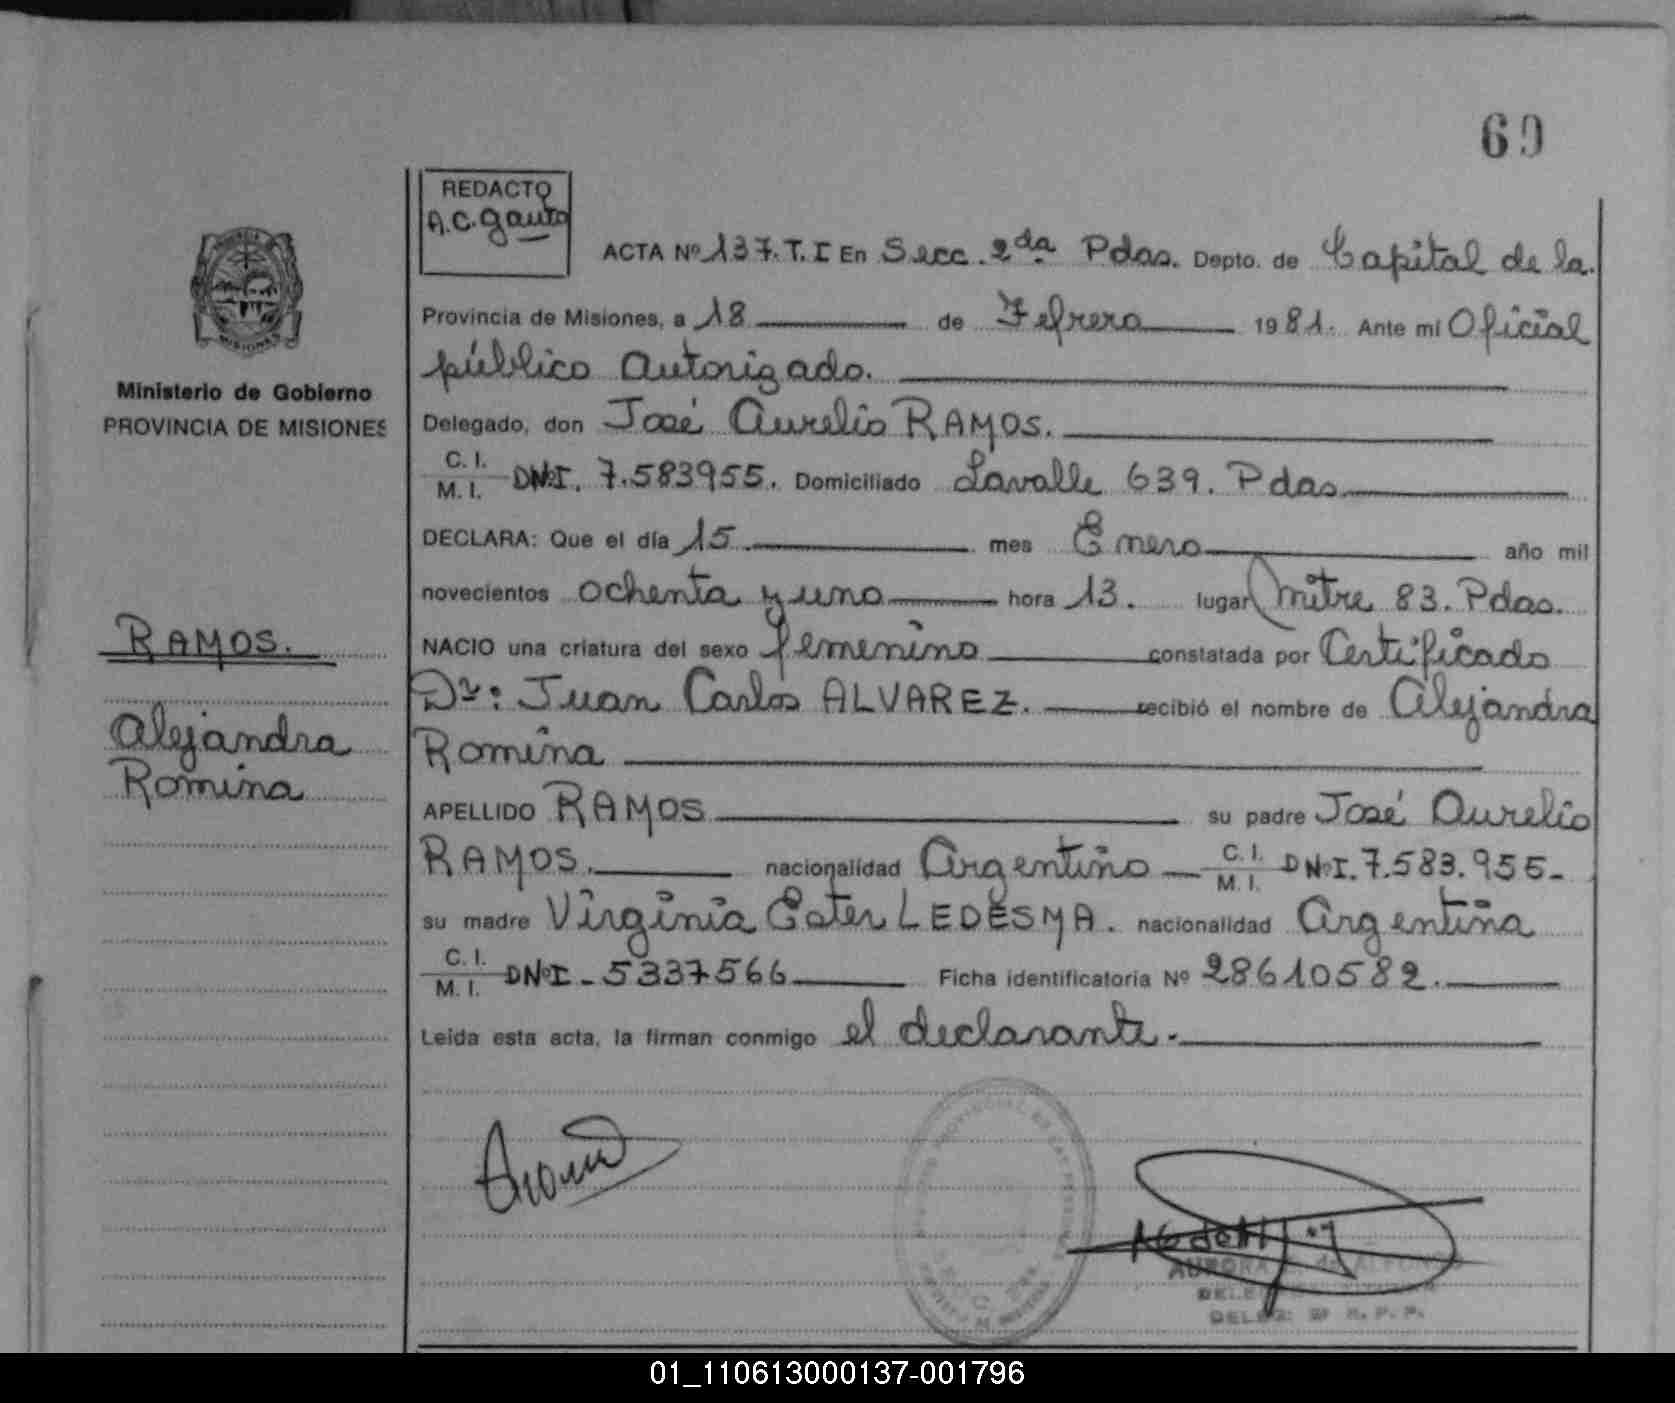 69
REDACTO
A.C. Gauto
ACTA Nº 137. T. I En Secc. 2da Pdas. Depto. de Capital de la.
Provincia de Misiones, a 18 de Febrero 1981. Ante mi Oficial
público Autorizado.
Delegado, don José Aurelio RAMOS.
C. I.
M. I. DNI. 7.583955. Domiciliado Lavalle 639. Pdas
DECLARA: Que el día 15 mes Enero año mil
novecientos ochenta y uno hora 13. lugar Mitre 83. Pdas.
NACIO una criatura del sexo femenino constatada por Certificado
Dr: Juan Carlos ALVAREZ. recibió el nombre de Alejandra
Romina
APELLIDO RAMOS su padre José Aurelio
RAMOS. nacionalidad Argentino C. I.
M. I. DNI. 7.583.955-
su madre Virginia Ester LEDESMA. nacionalidad Argentina
C. I.
M. I. DNI - 5337566 Ficha identificatoria Nº 28610582.
Leída esta acta, la firman conmigo el declarante.-
MISIONES
Ministerio de Gobierno
PROVINCIA DE MISIONES
RAMOS.
Alejandra
Romina
AURORA de ALFONSO
01_110613000137-001796